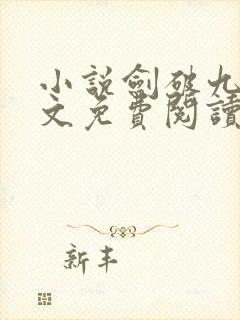 小說劍破九
文免費閱讀
新丰